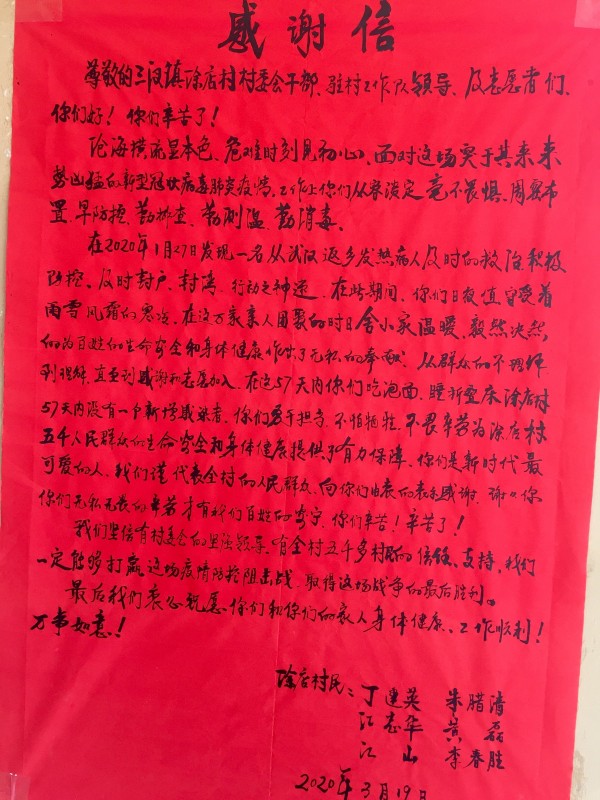 感谢信
尊敬的三汊镇涂店村村委会干部、驻村工作队领导、及志愿者们、
你们好！你们辛苦了！
沧海横流显本色、危难时刻见初心、面对这场突于其来来
势凶猛的新型冠状病毒肺炎疫情、工作上你们从容淡定毫不畏惧、周密布
置、早防控、勤排查、勤测温、勤消毒、
在2020年1月27日发现一名从武汉返乡发热病人及时的救治积极
防控、及时封户、封湾、行动之神速、在此期间、你们日夜值守受着
雨雪风霜的寒冷、在这万家亲人团聚的时日舍小家温暖、毅然决然、
的为百姓的生命安全和身体健康作出了无私的奉献、从群众的不理解
到理解、直至到感谢和志愿加入、在这57天内你们吃泡面、睡折叠床涂店村
57天内没有一个新增感染者、你们勇于担当、不怕牺牲、不畏辛劳为涂店村
五千人民群众的生命安全和身体健康提供了有力保障、你们是新时代最
可爱的人、我们谨代表全村的人民群众、向你们由衷的表示感谢、谢谢你
你们无私无畏的辛劳才有我们百姓的安宁、你们辛苦！辛苦了！
我们坚信有村委会的坚强领导、有全村五千多村民的信任、支持、我们
一定能够打赢这场疫情防控阻击战、取得这场战争的最后胜利。
最后我们衷心祝愿你们和你们的家人身体健康、工作顺利！
万事如意！
涂店村民：丁建英 朱腊清
江志华 黄磊
江山 李春胜
2020年3月19日